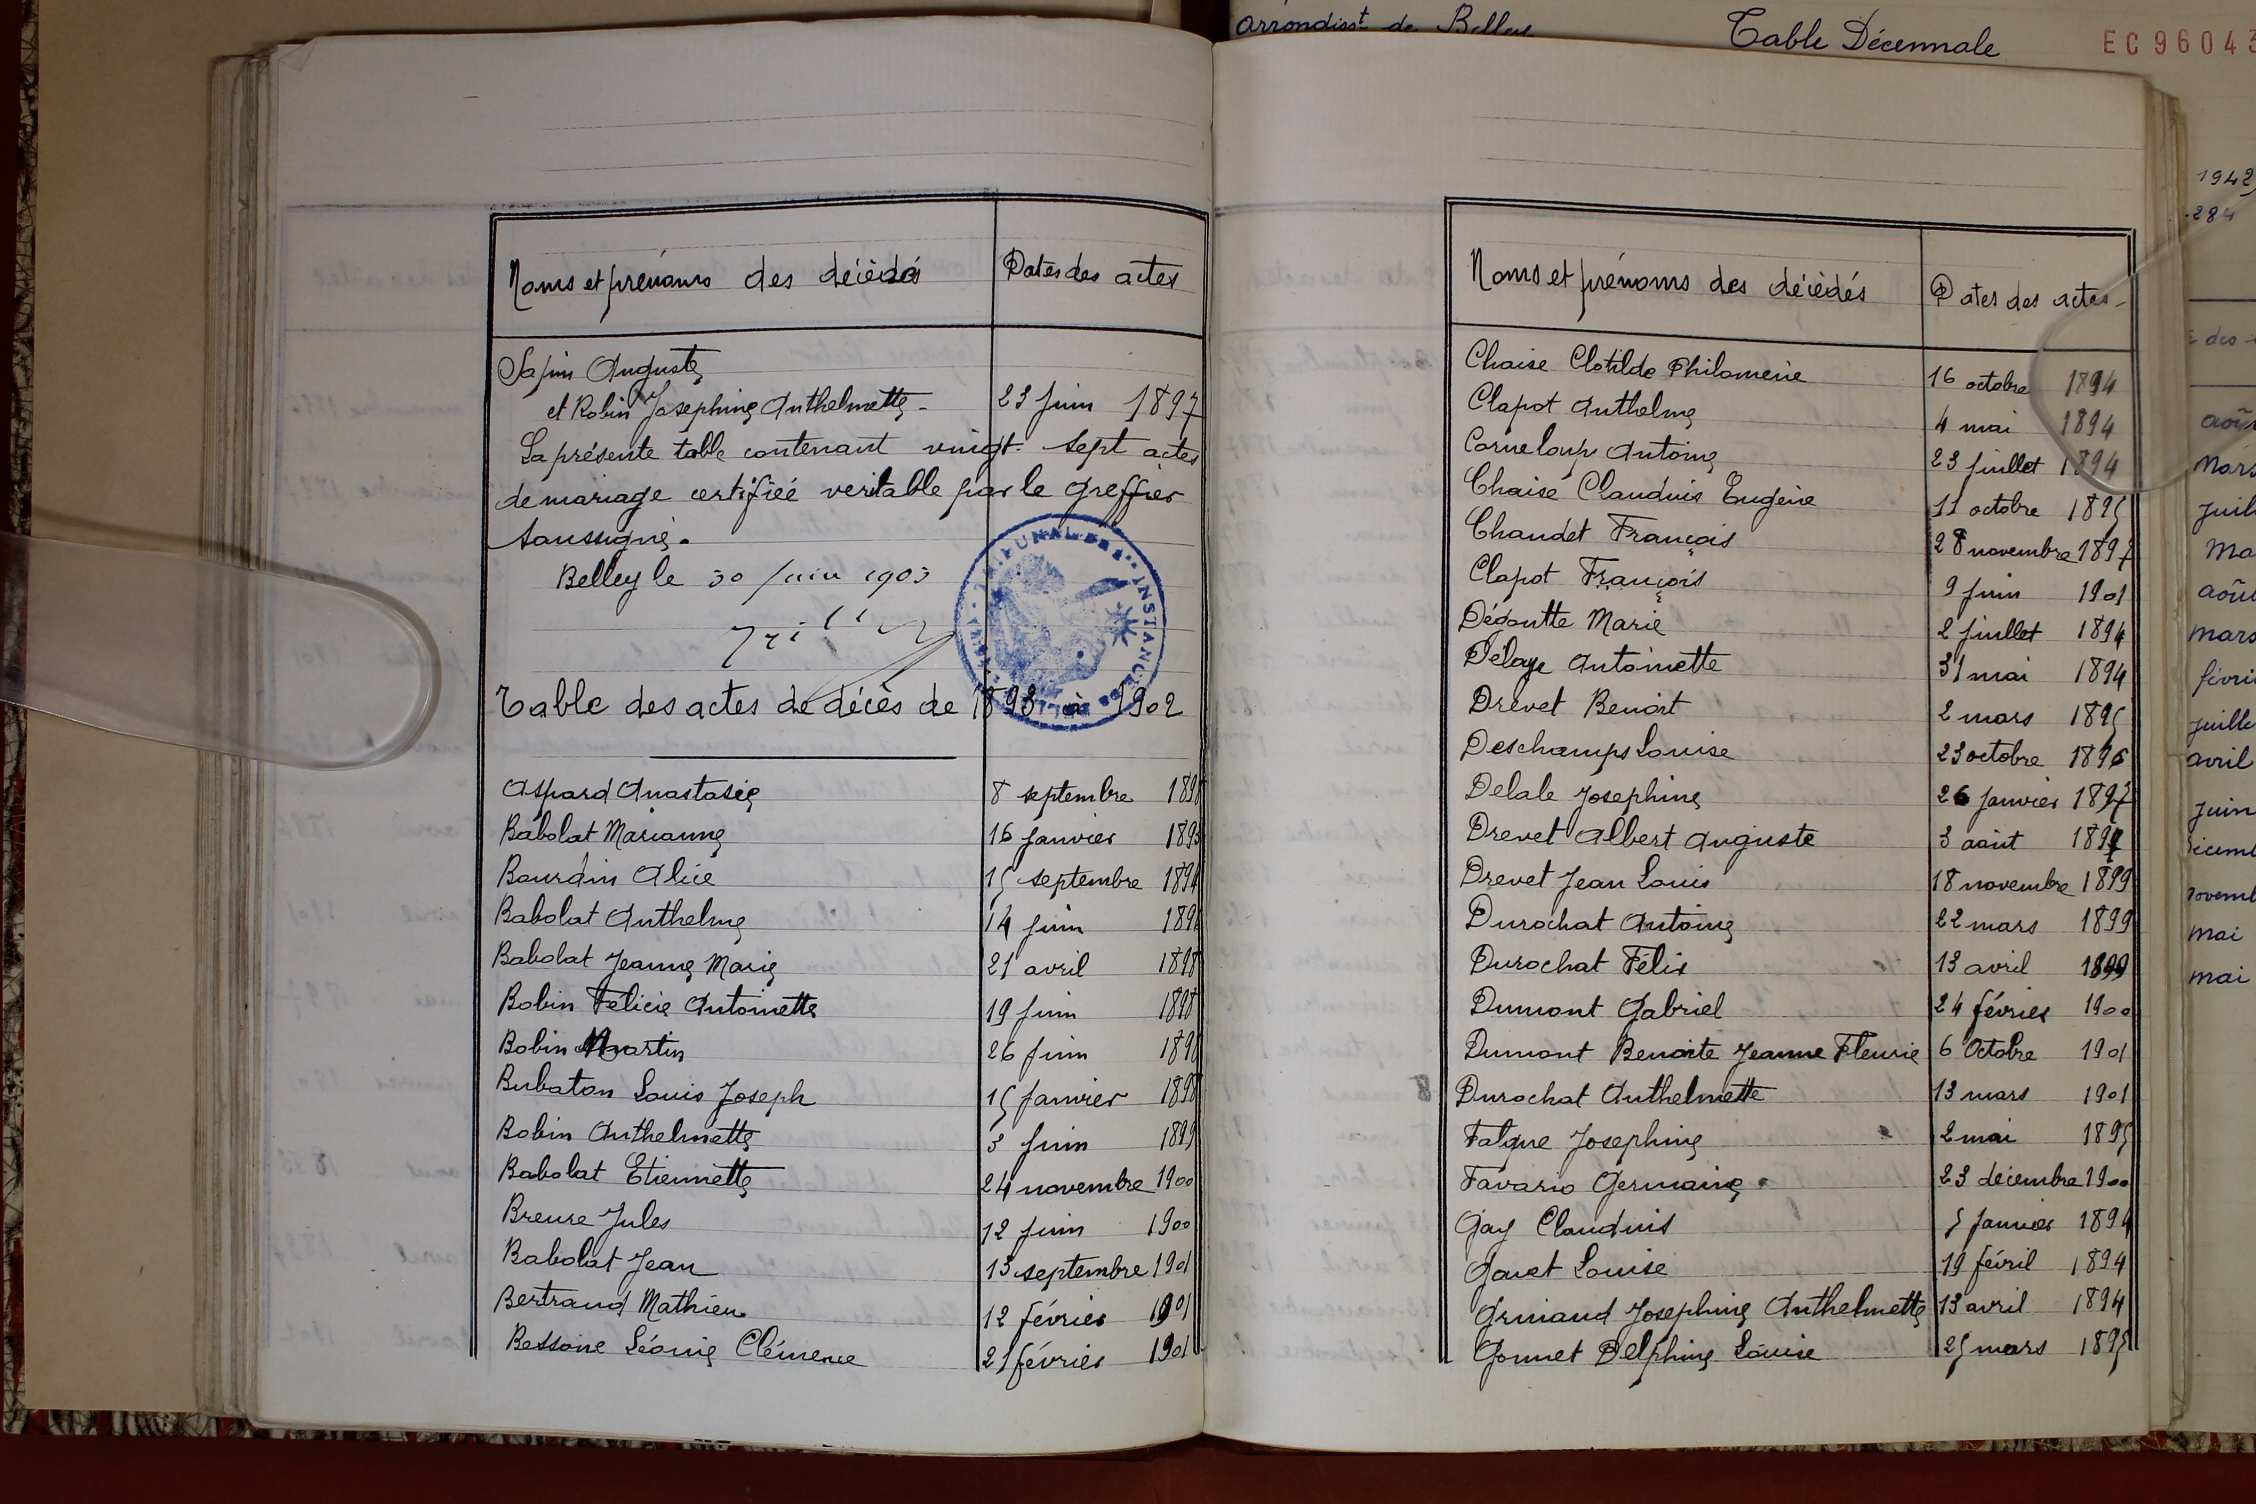 arrondisst de Belley
Table Décennale
EC 96043
1942
284
Noms et prénoms des décédés Dates des actes
Sapin Auguste
et Robin Josephine Anthelmette - 23 juin 1897
La présente table contenant vingt-sept actes
de mariage certifiée veritable par le Greffier
soussigné.
Belley le 30 juin 1903
Table des actes de décès de 1893 à 1902
Aspard Anastasie 8 septembre 1898
Babolat Marianne 16 janvier 1893
Bourdin Alice 15 septembre 1894
Babolat Anthelme 14 juin 189
Babolat Jeanne Marie 21 avril 1898
Bobin Félicie Antoinette 19 juin 1898
Bobin Martin 26 juin 1898
Bubaton Louis Joseph 15 janvier 1898
Bobin Anthelmette 3 juin 1899
Babolat Etiennette 24 novembre 1900
Breure Jules 12 juin 1900
Babolat Jean 13 septembre 1901
Bertrand Mathieu 12 février 1901
Bessone Léonie Clémence 21 février 1901
Noms et prénoms des décédés Dates des actes -
Chaise Clotilde Philomène 16 octobre 1894
Clapot Anthelme 4 mai 1894
Corneloup Antoine 23 juillet 1894
Chaise Claudius Eugène 11 octobre 1895
Chaudet François 28 novembre 1897
Clapot François 9 juin 1901
Dégoutte Marie 2 juillet 1894
Délaye Antoinette 31 mai 1894
Drevet Benoit 2 mars 1895
Deschamps Louise 23 octobre 1896
Delale Josephine 26 janvier 1897
Drevet Albert Auguste 3 août 1897
Drevet Jean Louis 18 novembre 1899
Durochat Antoine 22 mars 1899
Durochat Félix 13 avril 1899
Dumont Gabriel 24 février 1900
Dumont Benoite Jeanne Fleurie 6 Octobre 1901
Durochat Anthelmette 13 mars 1901
Falque Josephine 2 mai 1895
Favario Germaine 23 décembre 1900
Gay Claudius 5 janvier 1894
Gouet Louise 19 févril 1894
Griniand Josephine Anthelmette 13 avril 1894
Gonnet Delphine Louise 25 mars 1895